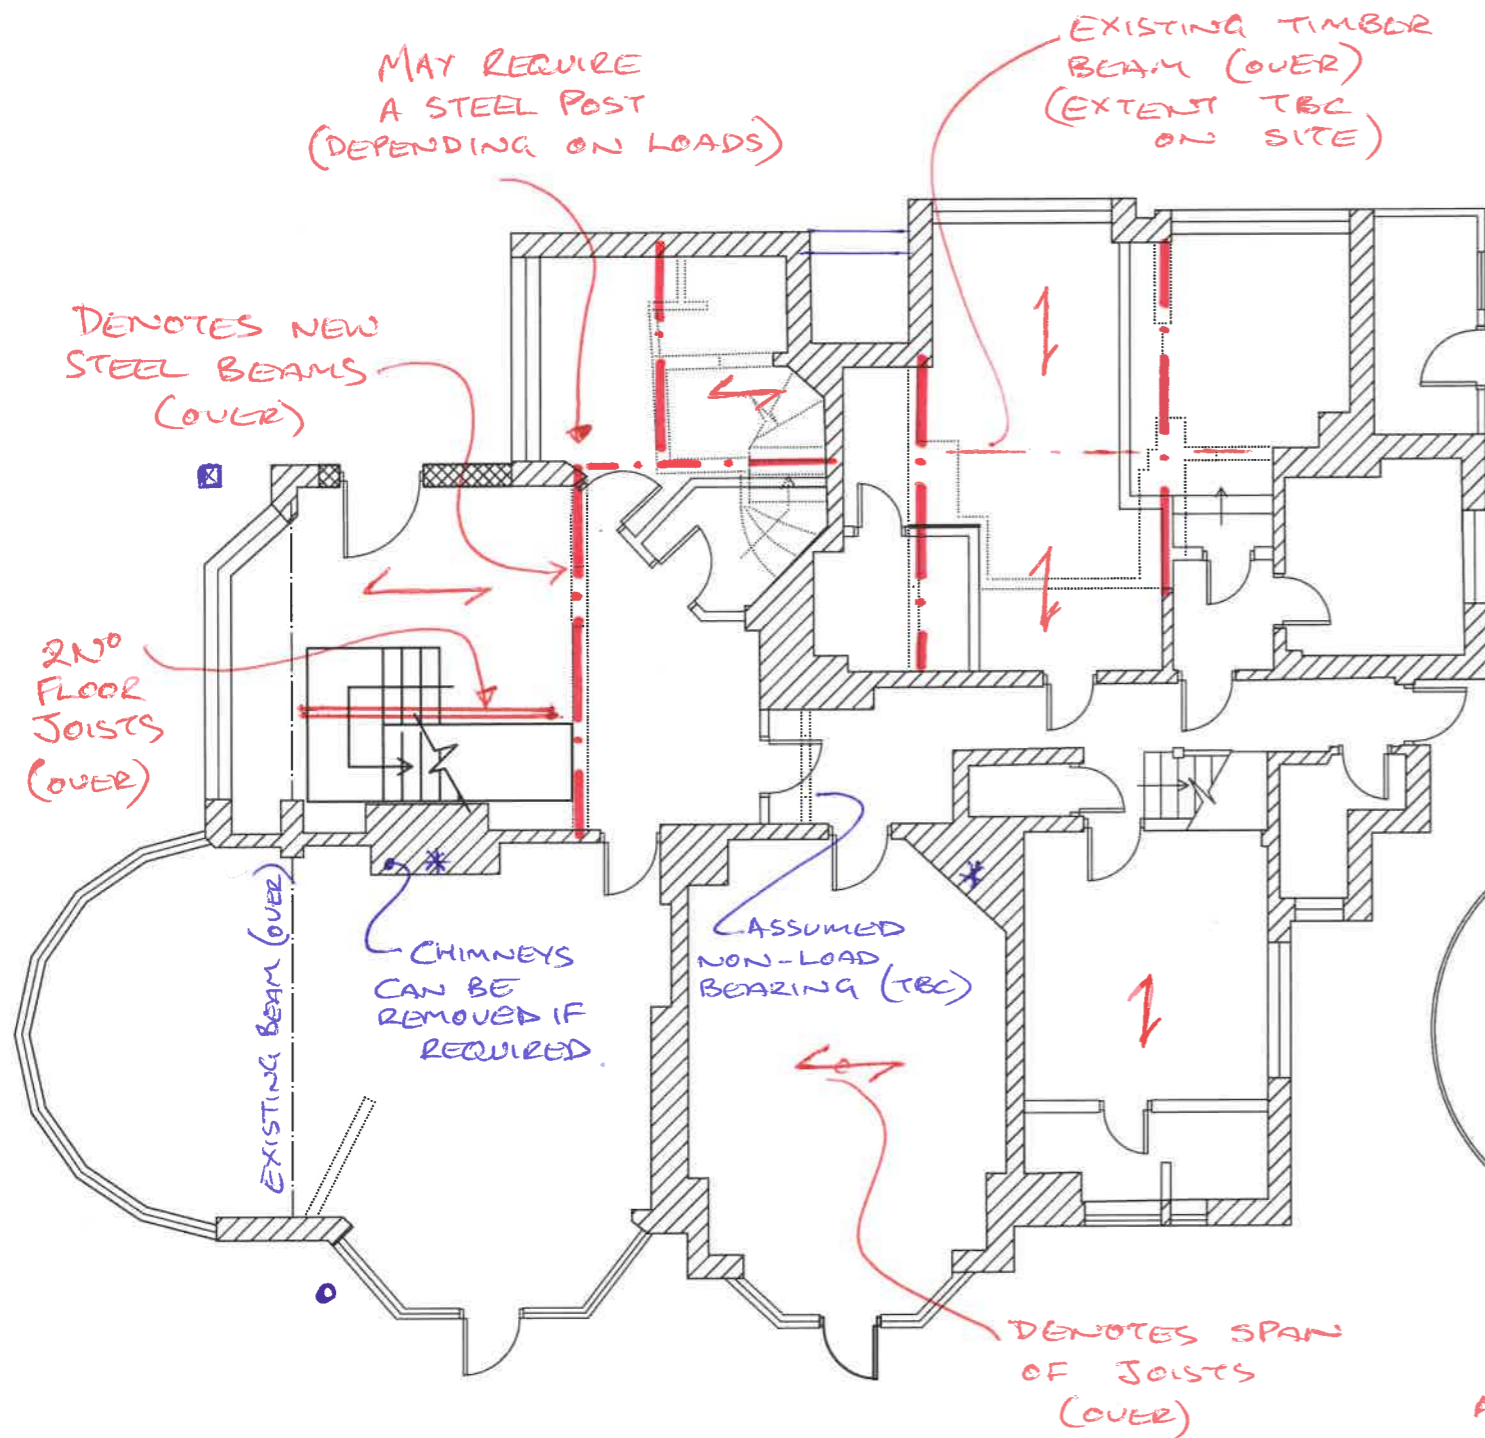 MAY REQUIRE
A STEEL POST
(DEPENDING ON LOADS)
EXISTING TIMBER
BEAM (OVER)
(EXTENT TBC
ON SITE)
DENOTES NEW
STEEL BEAMS
(OVER)
2Nº
FLOOR
JOISTS
(OVER)
EXISTING BEAM (OVER)
CHIMNEYS
CAN BE
REMOVED IF
REQUIRED.
ASSUMED
NON-LOAD
BEARING (TBC)
DENOTES SPAN
OF JOISTS
(OVER)